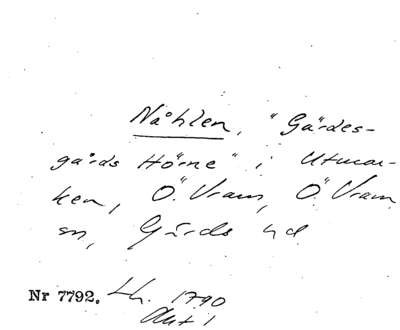 Nåhlen, "Gärdes-
gårds Hörne" i Utmar-
ken, Ö. Vram, Ö. Vram
sn, Gärds hd
Nr 7792. Lh. 1790
Akt 1